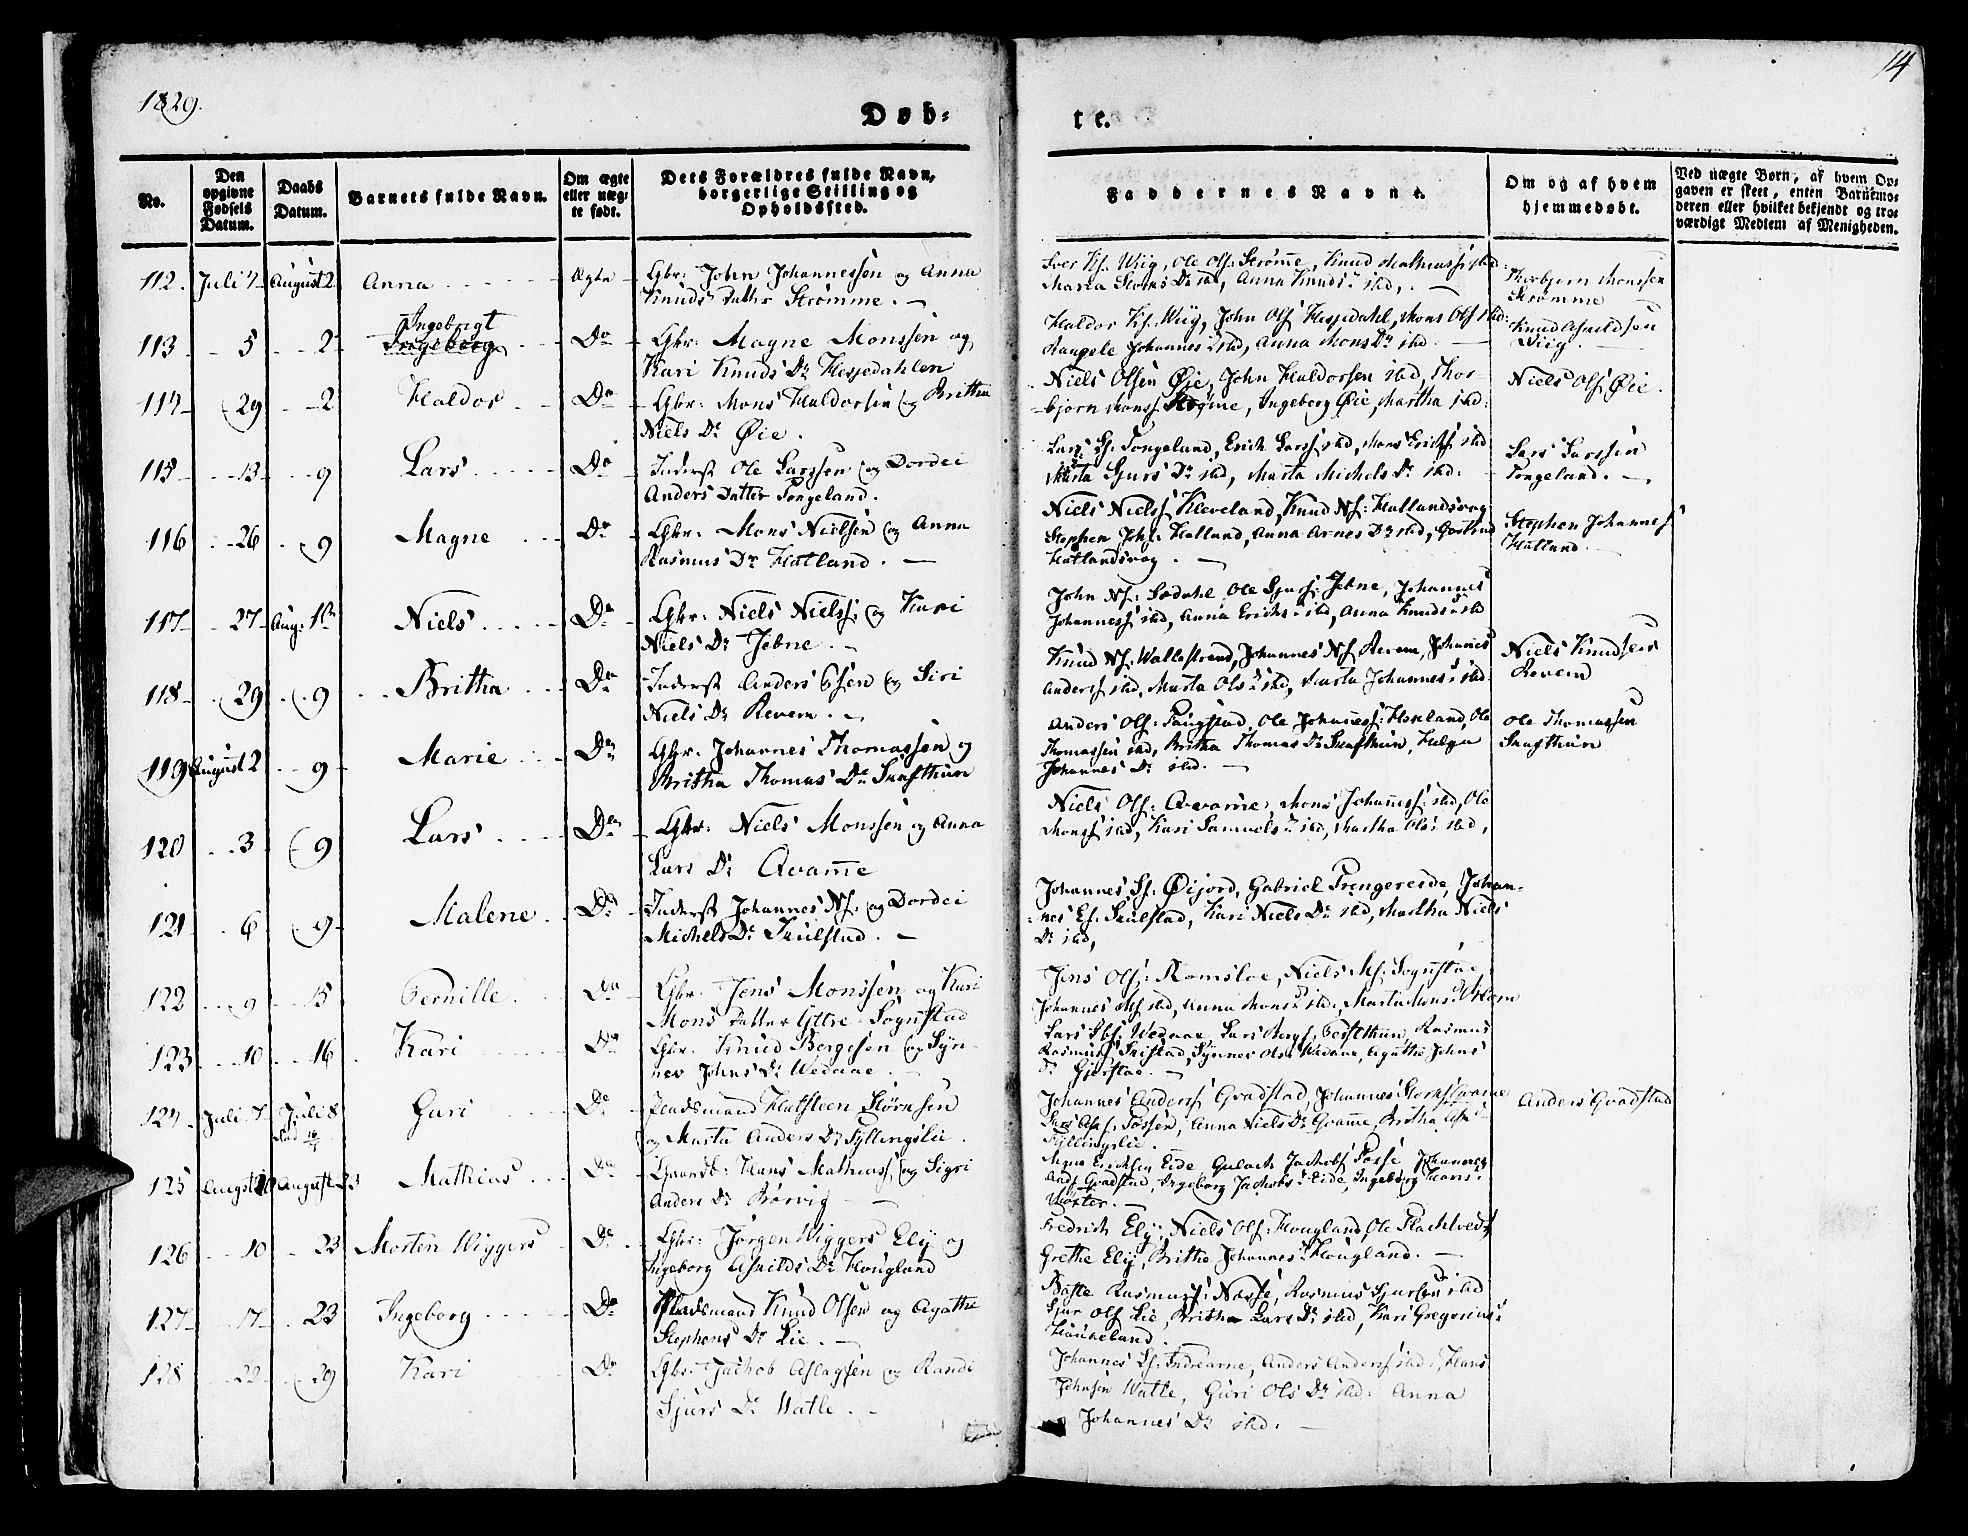 1829.
14
Døb=
te.
No.
Den opgivne Fødsels Datum.
Daabs Datum.
Barnets fulde Navn.
Om ægte eller uæg-te født.
Dets Forældres fulde Navn, borgerlige Stilling og Opholdssted.
Faddernes Navne.
Om og af hvem hjemmedøbt.
Ved uægte Børn, af hvem Op-gaven er skeet, enten Barnemo-deren eller hvilket bekjendt og tro-værdigt Medlem af Menigheden.
112. Juli 7 August 2 Anna Ægte Gbr: John Johannessen og Anna
Knuds Datter Strømme.
Iver Ks. Wiig, Ole Ols: Strømme, Knud Mathiass: std:
Anna Knuds sted,
Thorbjørn Monssen
Strømme
Ingebrigt
113 5 2 Ingeborg Do Gbr: Magne Monssen og
Kari Knuds Dr Hessedahlen
Haldor Ks. Wiig, John Ols Hessedahl, Mons Ols sted:
Johannes sted, Anna Mons Dr sted.
Knud
Wiig.
114 29 2 Haldor Do Gbr: Mons Haldorsen og Britha
Niels Dr Øie.
Niels Olsen Øie, John Haldorsen sted, Thor-
bjørn Monss Ingeborg Øie, Martha sted:
Niels Ols Øie.
115 13 9 Lars Do Inderst Ole Larssen og Dordei
Anders Datter Tongeland.
Lars Ls. Tongeland, Erich Larss sted, Mons Erichs sted
Marta Sjurs Dr sted, Marta Michels Dr sted:
Lars Larssen
Tongeland.
116 26 9 Magne Do Gbr: Mons Nielsen og Anna
Rasmus Dr Hatland.
Niels Nielss Kleveland, Knud Ns: Hatlandsvog
Stephen Joh: Hatland, Anna Arnes Dr sted,
Hatlandsvog.
Stephen Johannes
Hatland.
117 27 Aug: Niels Do Gbr: Niels Nielss: og Kari
Niels Dr Jebne.
John Ns: Ole Sjurs: Jebne, Johannes
Johanness sted, Anna Erichs sted, Anna Knuds sted
118 29 9 Britha Do Inderst Anders og Siri
Niels Dr Revem.
Knud Ns: Wallestrand, Johannes Ns Revem, Johannes
Anderss sted, Marta Ols sted, Marta Johannes sted.
Niels Knudsen
Revem
119 August 2 9 Marie Do Gbr: Johannes Thomassen og
Britha Thomas Dr Skafthun
Anders Ols: Ole Johannes: Ole
Thomassen sted, Britha Thomas Dr Skafthun, Helga
Johannes Dr sted.
Ole Thomassen
Skafthun
120 3 9 Lars Do Gbr: Niels Monssen og Anna
Lars Dr Qvamme
Niels Ols: Qvamme, Mons Johanness: sted, Ole
Monss sted, Kari Samuels sted, Martha Ols sted,
121 6 9 Malene Do Inderst Johannes Ns: og Dordei
Michels Dr Skulstad.
Johannes Øijord, Gabriel Trengereide, Johan-
nes Skulstad, Kari Niels Dr sted, Martha Niels
Dr sted,
122 9 15 Pernille Do Gbr. Jens Monssen og Kari
Mons Datter Yttre Sognstad
Jens Ols: Romsloe, Niels Ms: Sognstad,
Johannes Ms sted, Anna Mons sted, Marta Mons
123 10 16 Kari Do Gbr. Knud Bergesen og Syn-
nev Johns Dr Wedaae.
Lars Wedaae, Lars Rasmus
Rasmuss Synnev Ols Wedaae, Agathe Johns
Dr Gjerstad.
124 Juli 7 Juli 8 Guri Do Pladsmand Hatsteen Størksen
og Marta Anders Dr Fyllingslie.
Johannes Anderss Gradstad, Johannes
Fossen, Anna Niels Dr Qvamme, Britha
Fyllingslie.
Anders Gradstad
125 August 10 August 23 Mathias Do Gaardb: Hans Mathiass, og Sigri
Anders Dr Børvig
Ericksen Eide, Gulach Jachobs Fosse, Johannes
Ands Gradstad, Ingeborg Jachobs Eide, Ingeborg Hans
126 10 23 Morten Wiggers Do Gbr: Jørgen Wiggers Ely og
Ingeborg Asmilds Dr Hougland
Fredrich Ely, Niels Ols: Hougland, Ole Flachtvedt
Grethe Ely, Brithe Johannes Hougland.
127 17 23 Ingeborg Do Pladsmand Knud Olsen og Agathe
Stephens Dr Lie.
Rasmuss: Nosse, Rasmus Sjursen sted
Sjur Ols Lie, Britha Lars Dr sted, Kari Gregorius
Houkeland.
128 22 29 Kari Do Gbr: Jachob Aslagsen og Randi
Sjurs Dr Watle.
Johannes Indrearne, Anders Anderss sted, Hans
Johnsen Watle, Guri Ols Dr sted: Anna
Johannes Dr sted: